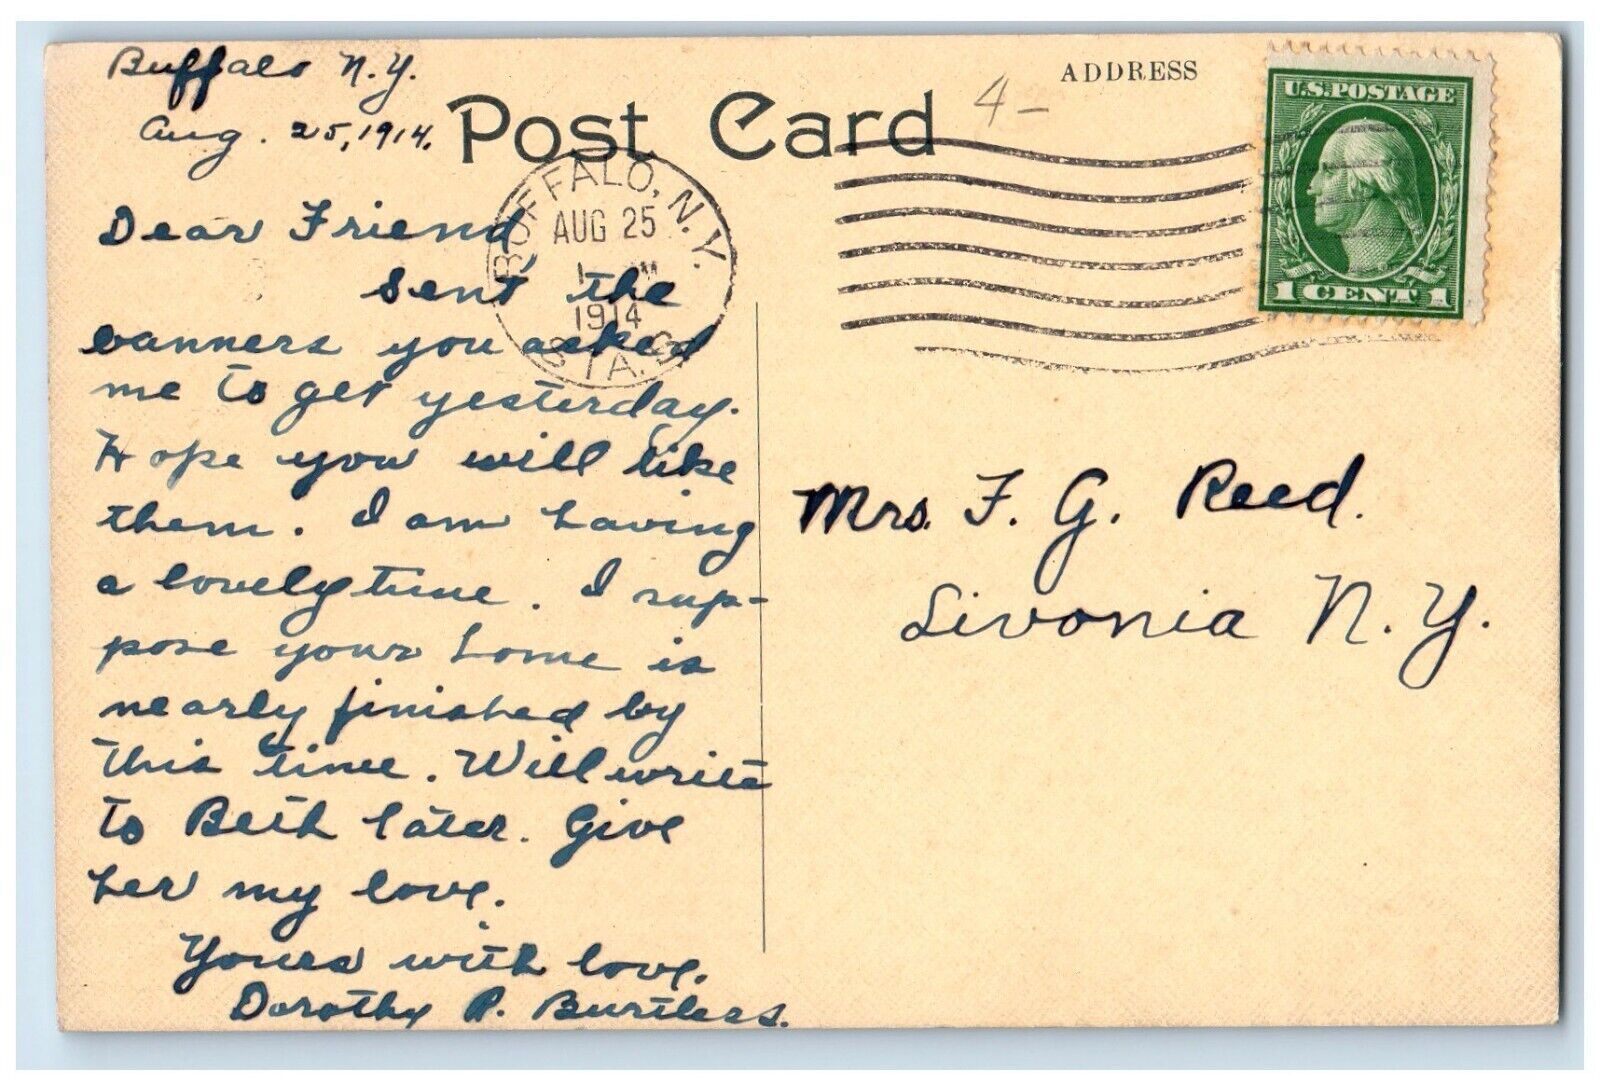 Buffalo N.Y.
Aug. 25, 1914.
Post Card
ADDRESS
4-
U.S. POSTAGE
1 CENT 1
BUFFALO, N.Y.
AUG 25
1914
STA.
Dear Friend,
Sent the
banners you asked
me to get yesterday.
Hope you will like
them. I am having
a lovely time. I sup-
pose your home is
nearly finished by
this time. Will write
to Beth later. Give
her my love.
Yours with love.
Dorothy
Mrs. F. G. Reed.
Livonia N.Y.